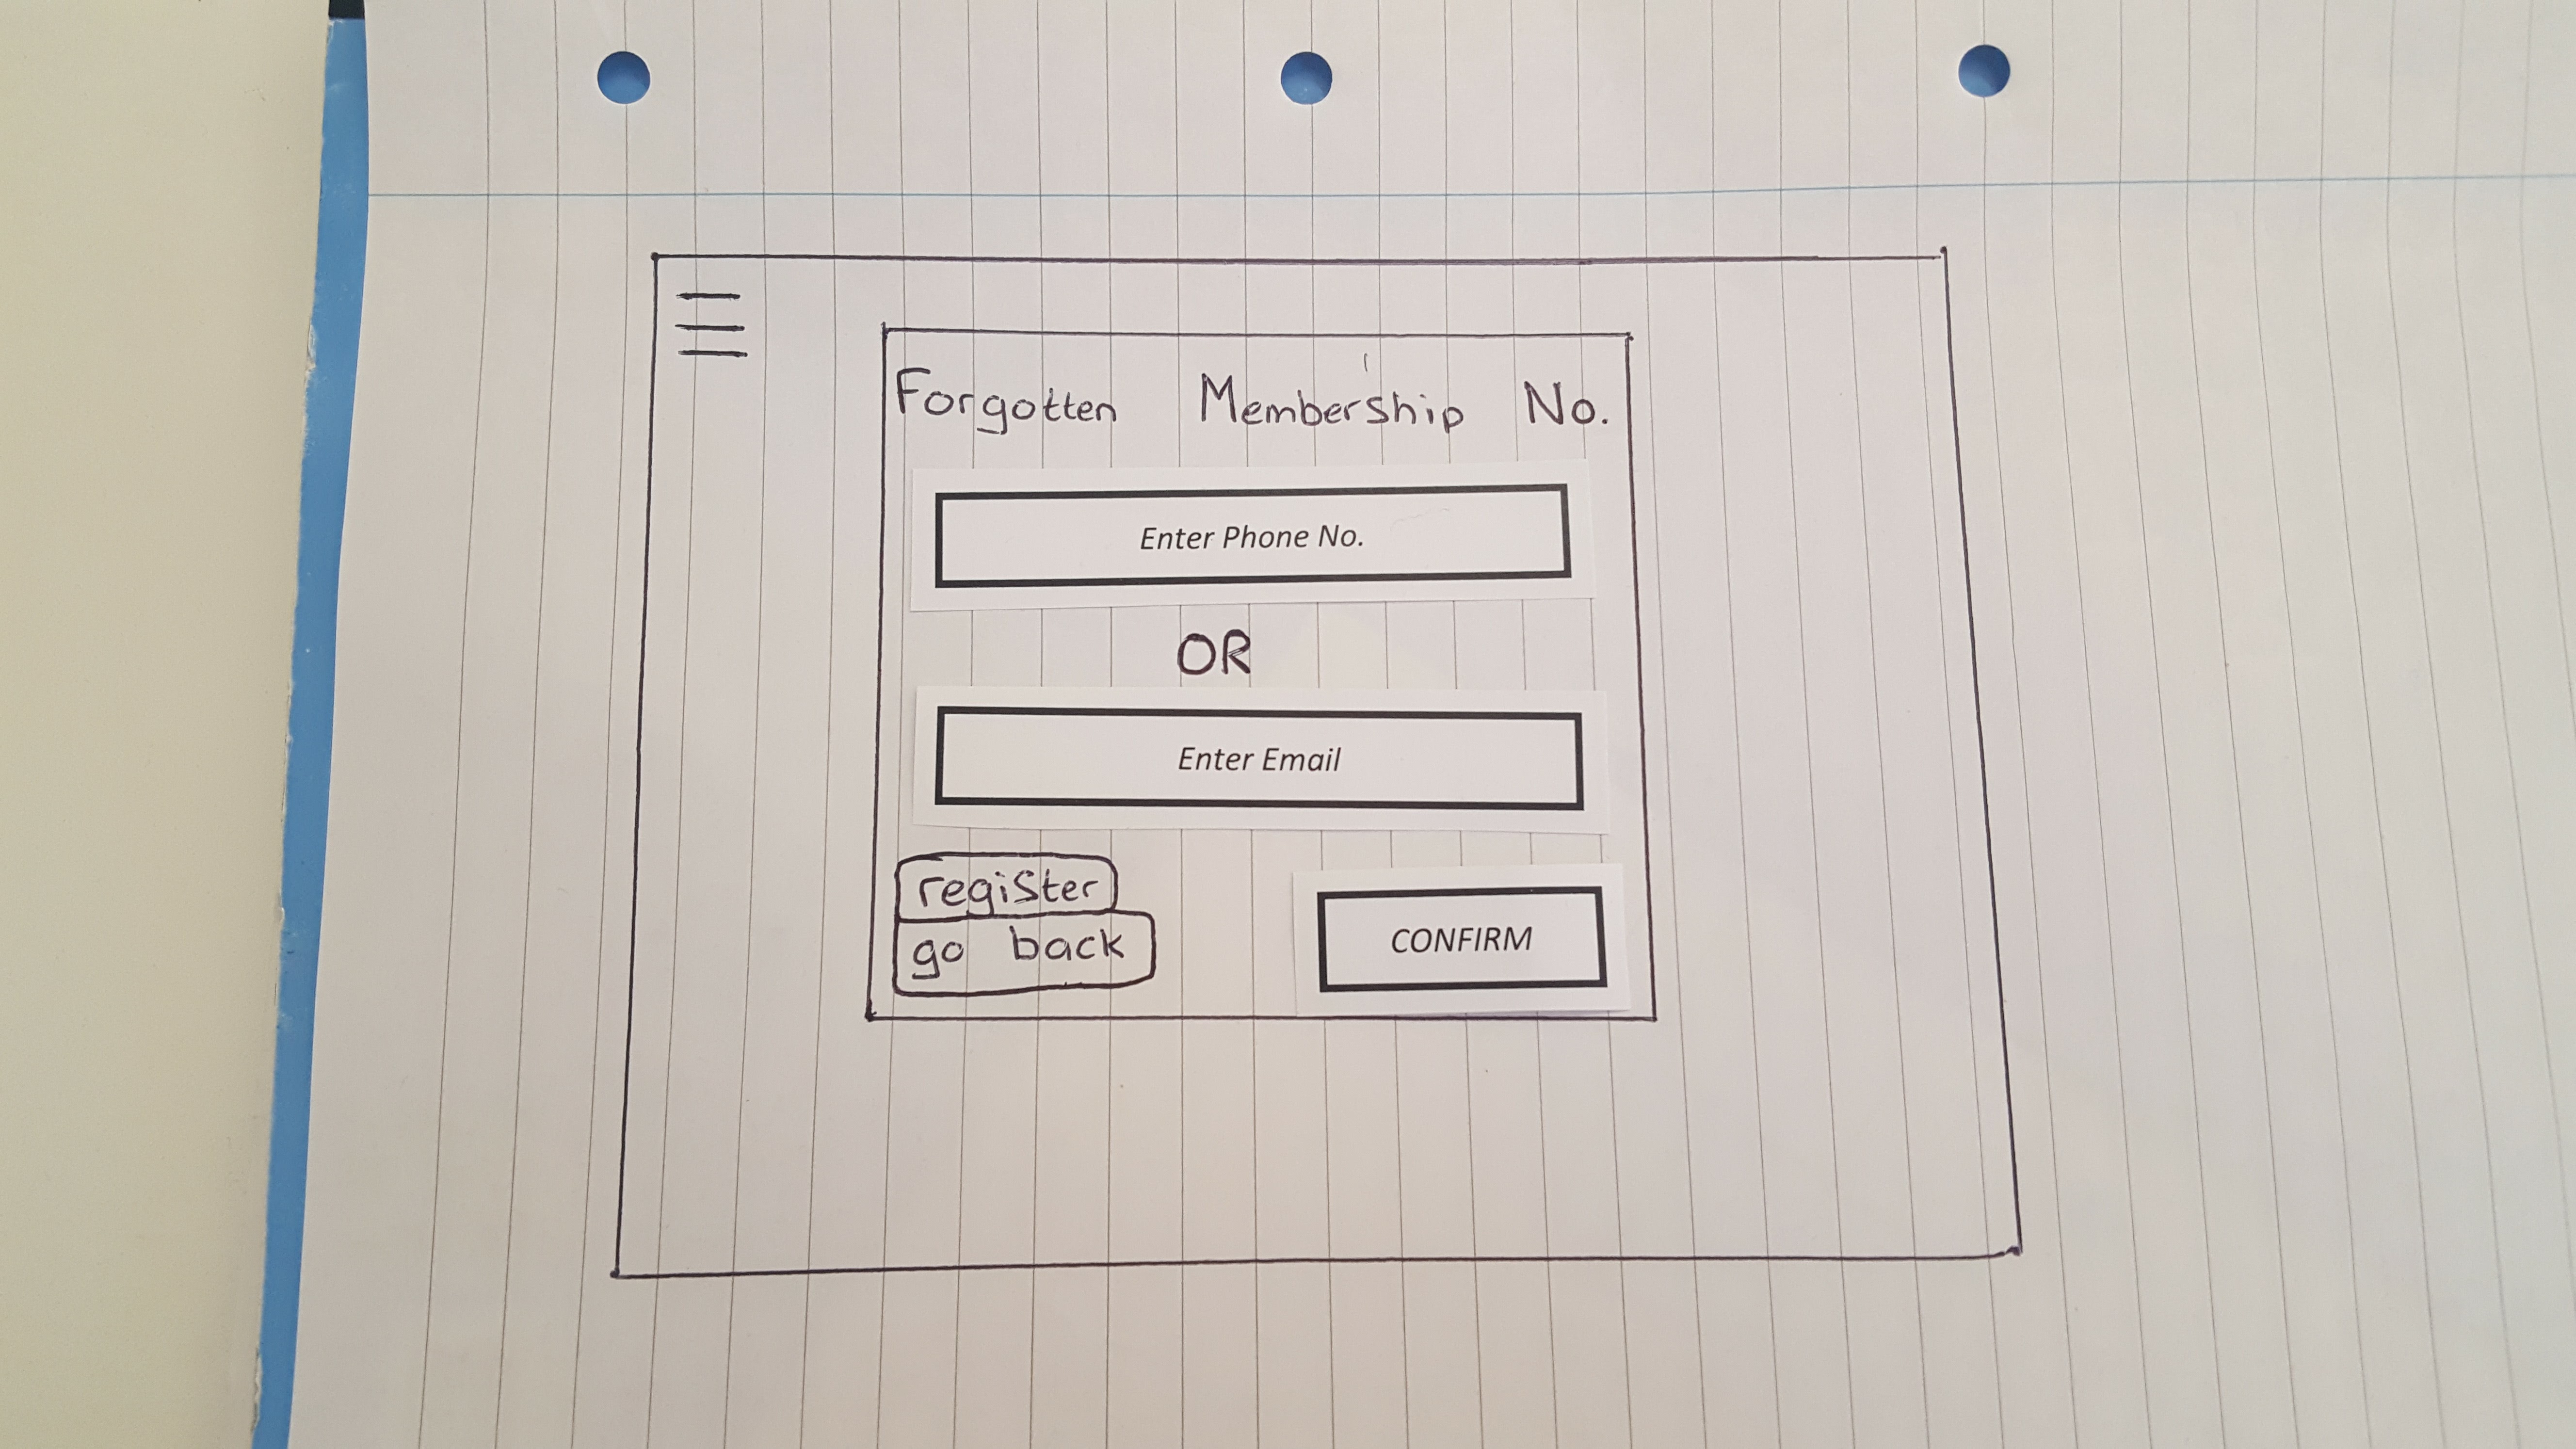 Forgotten Membership No.
Enter Phone No.
OR
Enter Email
register
go back
CONFIRM